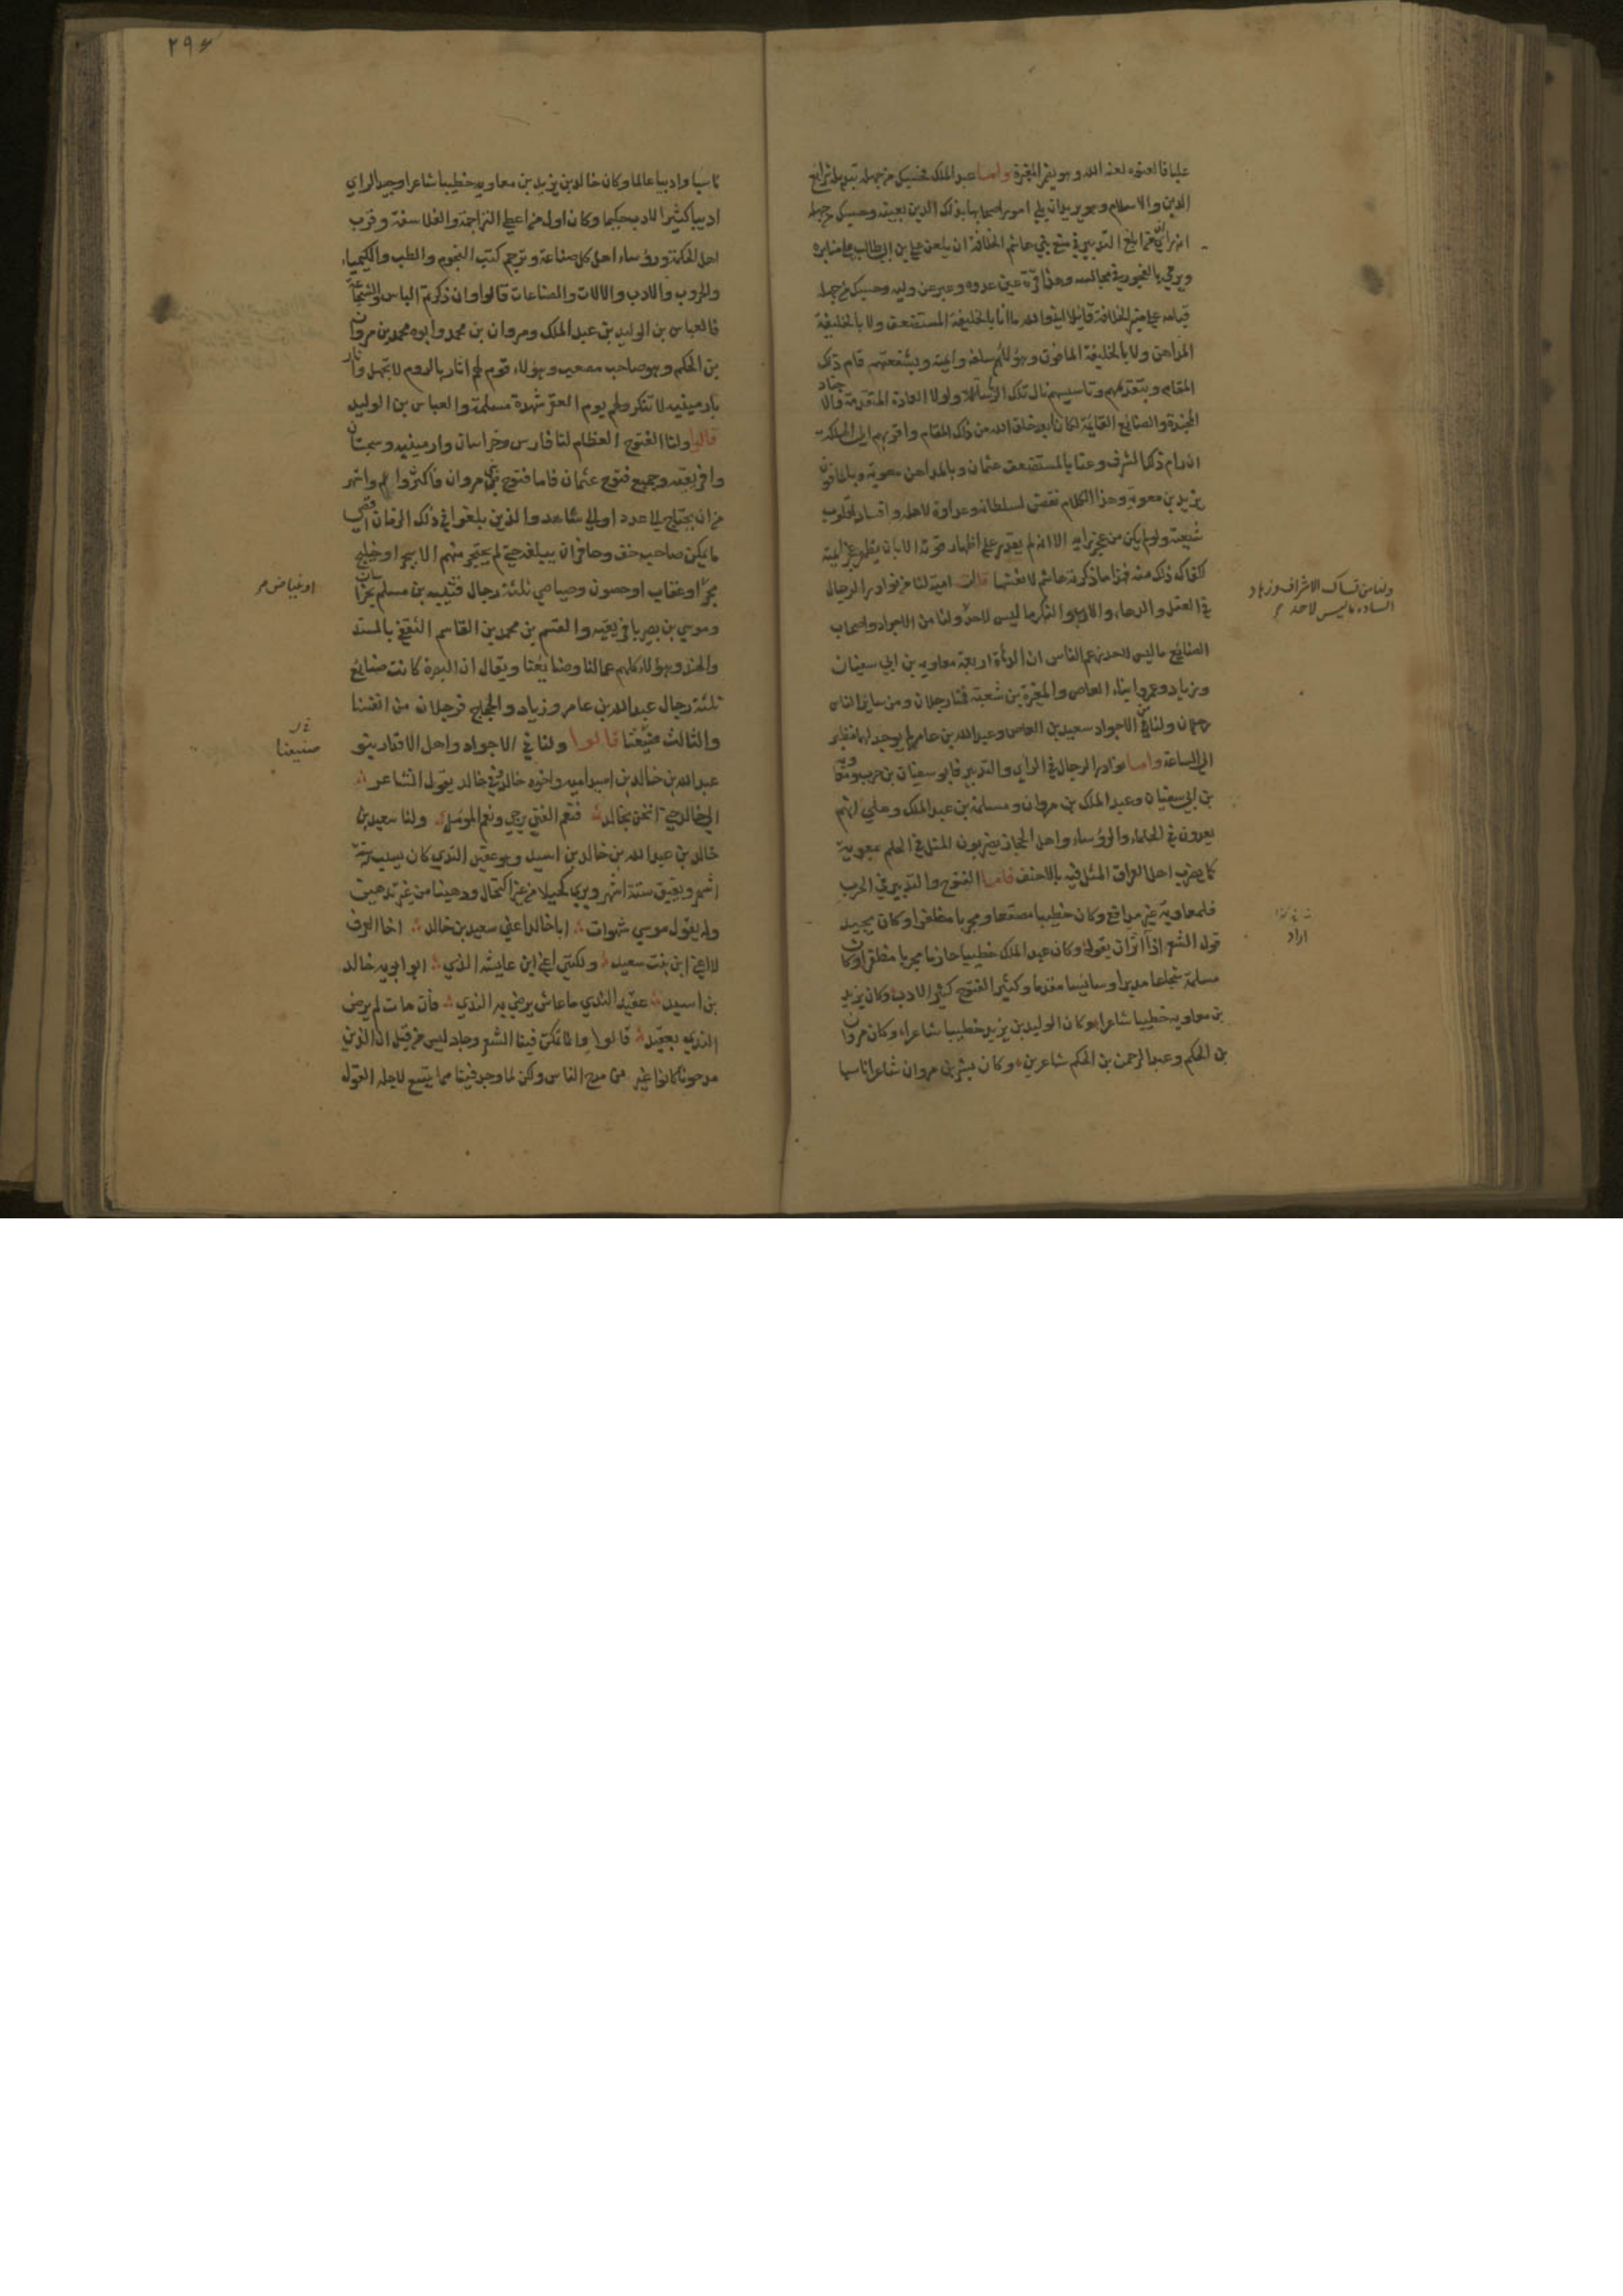 عليا قال لعنوه لعنه الله وهو يقر المغيرة واما عبد الملك فحسبك من جهله تبديله شرائع
الدين والاسلام وهو يريد ان يلي امور اصحابها بذلك الدين بعينه وحسبك من جهله
انه راى من ابلغ التدبير في منع بني هاشم الخلافة ان يلعن علي بن ابي طالب على منابره
ويرمى بالفجور في مجالسه وهذا قرة عين عدوه وعير عن وليه وحسبك من جهله
قيامه على منبر الخلافة قائلا اني والله ما انا بالخليفة المستضعف ولا بالخليفة
المداهن ولا بالخليفة المافون وهؤلاء هم سلفه وائمته وبشفعتهم قام ذلك
المقام وبتقدمهم وتاسيسهم نال تلك الرئاسة ولولا العادة المتقدمة والاجناد
المجندة والصنائع القائمة لكان ابعد خلق الله من ذلك المقام واقربهم الى المهلكة
ان رام ذلك الشرف وعنى بالمستضعف عثمان وبالمداهن معوية وبالمافون
يزيد بن معوية وهذا الكلام نقض لسلطانه وعداوة لاهله وافساد لقلوب
شيعته ولو لم يكن من عجز رايه الا انه لم يقدر على اظهار قوته الا بان يظهر عجز ائمته
لكفاك ذلك منه فهذا ما ذكرته هاشم لانفسها قالت امية لنا من نوادر الرجال
في العقل والدهاء والادب والنكر ما ليس لاحد ولنا من الاجواد واصحاب
ولنا من نساك الاشراف وزهاد
السادة ما ليس لاحد
الصنائع ما ليس لاحد زعم الناس ان الدهاة اربعة معاويه بن ابي سفيان
وزياد وعمرو بن العاص والمغيرة بن شعبة فمنا رجلان ومن سائر الناس
رجلان ولنا في الاجواد سعيد بن العاص وعبد الله بن عامر لم يوجد لهما نظير
الى الساعة واما نوادر الرجال في الراى والتدبير فابو سفيان بن حرب ومعوية
بن ابي سفيان وعبد الملك بن مروان ومسلمة بن عبد الملك وعلى انهم
يعدون في الحلماء والرؤساء واهل الحجاز يضربون المثل في الحلم بمعوية
كما يضرب اهل العراق المثل فيه بالاحنف فاما الفتوح والتدبير في الحرب
فلمعاوية غير مدافع وكان خطيبا مصقعا ومجربا مظفرا وكان يجيد
قول الشعر اذا آثر ان يقوله وكان عبد الملك خطيبا حازما مجربا مظفرا وكان
اراد
مسلمة شجاعا مدبرا وسائسا مقدما وكثير الفتوح كثير الادب وكان يزيد
بن معاويه خطيبا شاعرا وكان الوليد بن يزيد خطيبا شاعرا وكان مروان
بن الحكم وعبد الرحمن بن الحكم شاعرين وكان بشر بن مروان شاعرا ناسبا
٢٩٤
ناسبا واديبا عالما وكان خالد بن يزيد بن معاويه خطيبا شاعرا وجيد الراي
اديبا كثير الادب حكيما وكان اول من اعطى التراجمة والفلاسفة وقرب
اهل الحكمة ورؤساء اهل كل صناعة وترجم كتب النجوم والطب والكيمياء
والحروب والادب والالات والصناعات قالوا وان ذكرتم الباس والشجاعة
فالعباس بن الوليد بن عبد الملك ومروان بن محمد وابوه محمد بن مروان
بن الحكم وهو صاحب مصعب وهؤلاء قوم لهم اثار بالروم لا تجهل واثار
بارمينيه لا تنكر ولهم يوم العقر شهده مسلمة والعباس بن الوليد
قالوا ولنا الفتوح العظام لنا فارس وخراسان وارمينيه وسجستان
وافريقيه وجميع فتوح عثمان فاما فتوح بني مروان فاكثر واعم واشهر
من ان يحتاج الى عدد او الى شاهد والذين بلغوا في ذلك الزمان اقصى
ما يمكن صاحب خف وحافر ان يبلغه حتى لم يحتجز منهم الا ببحر او خليج
بحر او عقاب او حصون وصياصي ثلثة رجال قتيبه بن مسلم بخراسان
او غياض
وموسى بن نصير بافريقيه والقسم بن محمد بن القاسم الثقفي بالسند
والهند وهؤلاء كلهم عمالنا وصنايعنا ويقال ان البصرة كانت صنايع
ثلثة رجال عبد الله بن عامر وزياد والحجاج فرجلان من انفسنا
والثالث صنيعنا قالوا ولنا في الاجواد واهل الاقدار بنو
صنيعنا
عبد الله بن خالد بن اسيد اميه واخوه خالد وفي خالد يقول الشاعر
الى خالد حتى انخن بخالد فنعم الفتى يرجى ونعم المؤمل ولنا سعيد بن
خالد بن عبد الله بن خالد بن اسيد وهو عقيد الندي كان يسبت ستة
اشهر ويفيق ستة اشهر ويرى كحيلا من غير اكتحال ودهينا من غير تدهين
وله يقول موسى شهوات ابا خالد اعني سعيد بن خالد اخا العرف
لا اعني ابن بنت سعيد ولكنني اعني ابن عايشه الذي ابو ابويه خالد
بن اسيد عقيد الندي ما عاش يرضى به الندي فان مات لم يرض
الندي بعقيد قالوا وانما تمكن فينا الشعر وجاد ليس من قبل ان الذين
مدحونا كانوا غير من مدح الناس ولكن لما وجدوا فينا مما يتسع لاجله القول